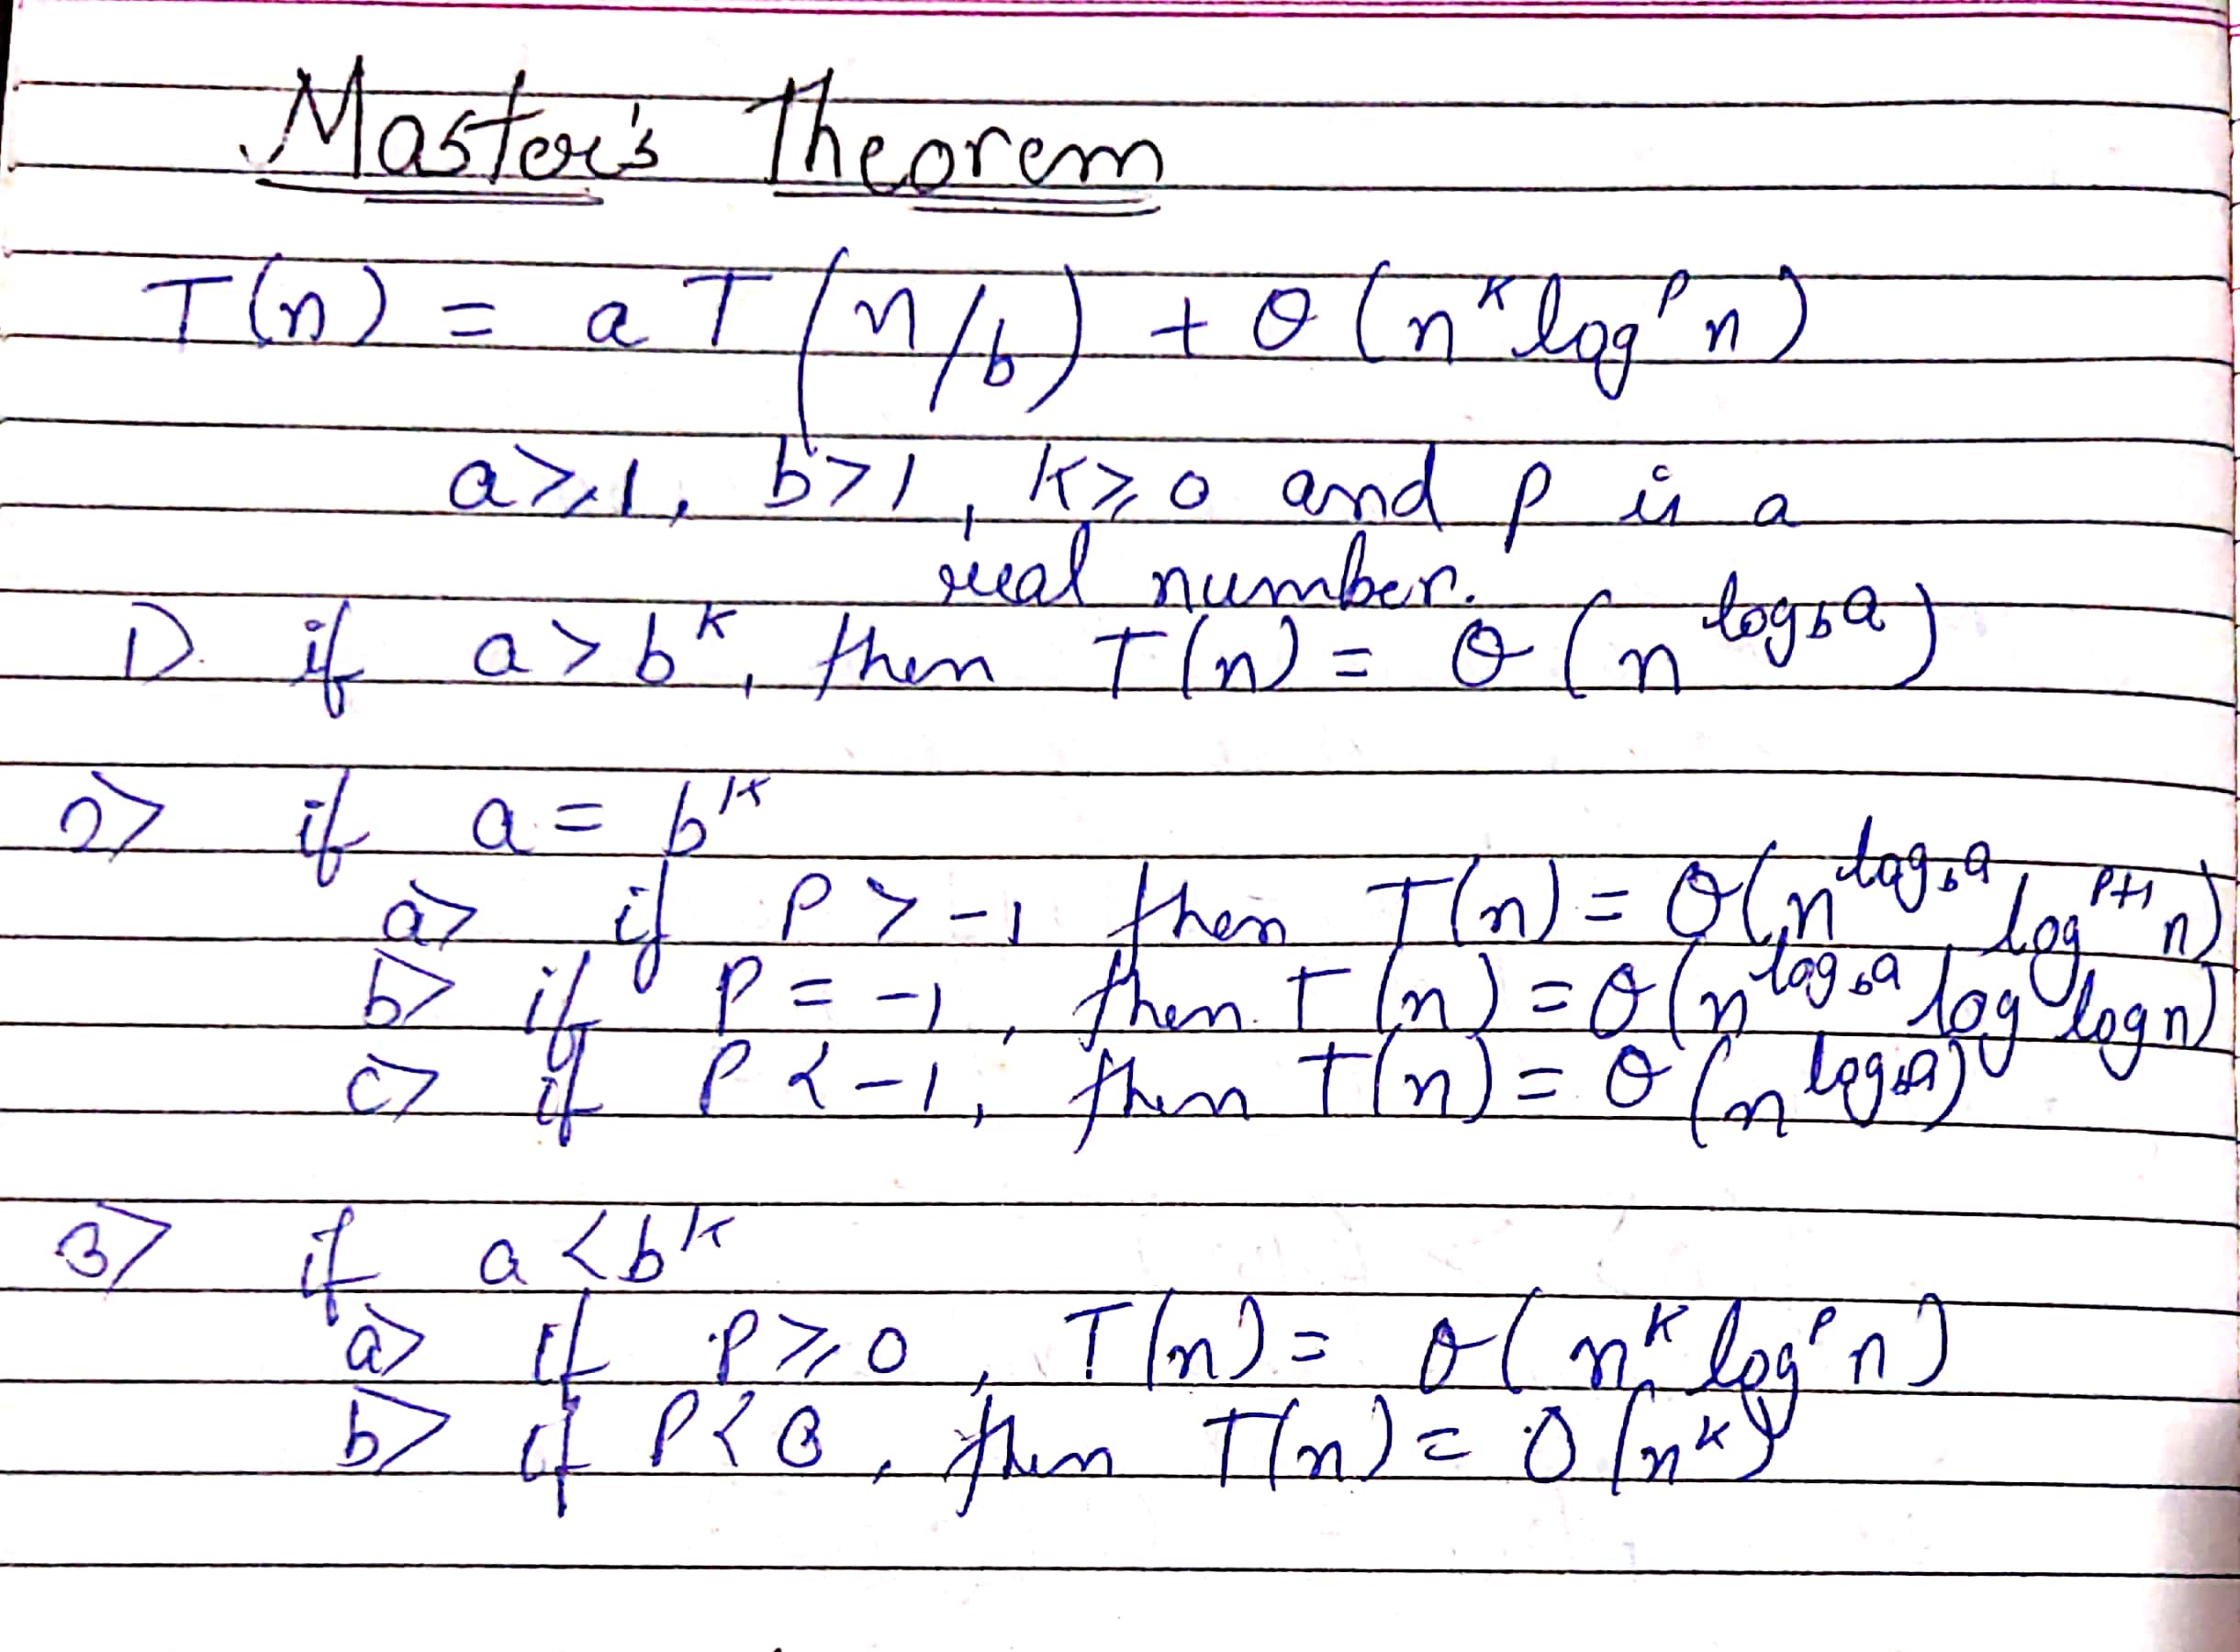 Master's Theorem
T(n) = a T(n/b) + θ(n^k log^p n)
a ≥ 1, b > 1, k ≥ 0 and p is a
real number.
1) if a > b^k, then T(n) = θ(n^log_b a)
2> if a = b^k
a> if p > -1 then T(n) = θ(n^log_b a log^p+1 n)
b> if p = -1, then T(n) = θ(n^log_b a log log n)
c> if p < -1, then T(n) = θ(n^log_b a)
3> if a < b^k
a> if p ≥ 0, T(n) = θ(n^k log^p n)
b> if p < 0, then T(n) = O(n^k)